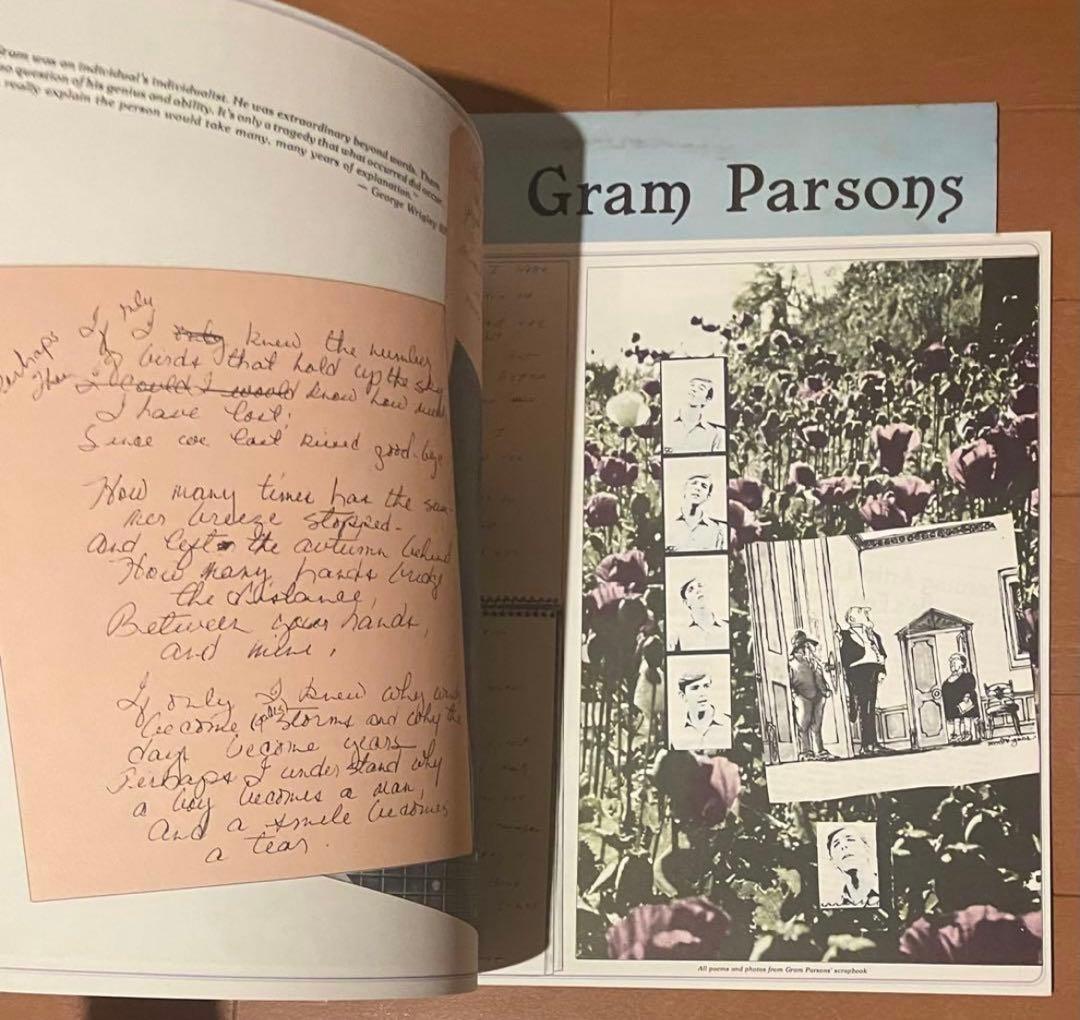 Gram was an individual's individualist. He was extraordinary beyond words. There
no question of his genius and ability. It's only a tragedy that what occurred did occur.
really explain the person would take many, many years of explanation."
— George Wrigley
Gram Parsons
If I only knew the number
Perhaps of birds that hold up the sky
Then I could I would know how much
I have lost;
Since we last kissed good-bye
How many times has the sum-
mer breeze stopped-
and left the autumn behind
How many hands bridge
the distance,
Between your hands,
and mine,
If only I knew why
become storms and why the
days become years
Perhaps I understand why
a boy becomes a man,
And a smile becomes
a tear.
All poems and photos from Gram Parsons' scrapbook